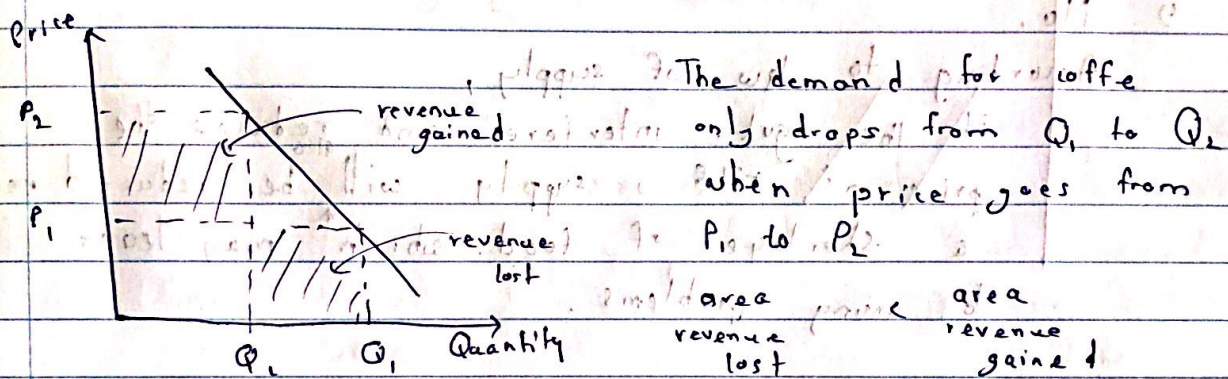 Price
P₂
P₁
revenue
gained
revenue
lost
Q₂
Q₁
Quantity
The demand for coffe
only drops from Q₁ to Q₂
when price goes from
P₁ to P₂
area revenue lost < area revenue gained